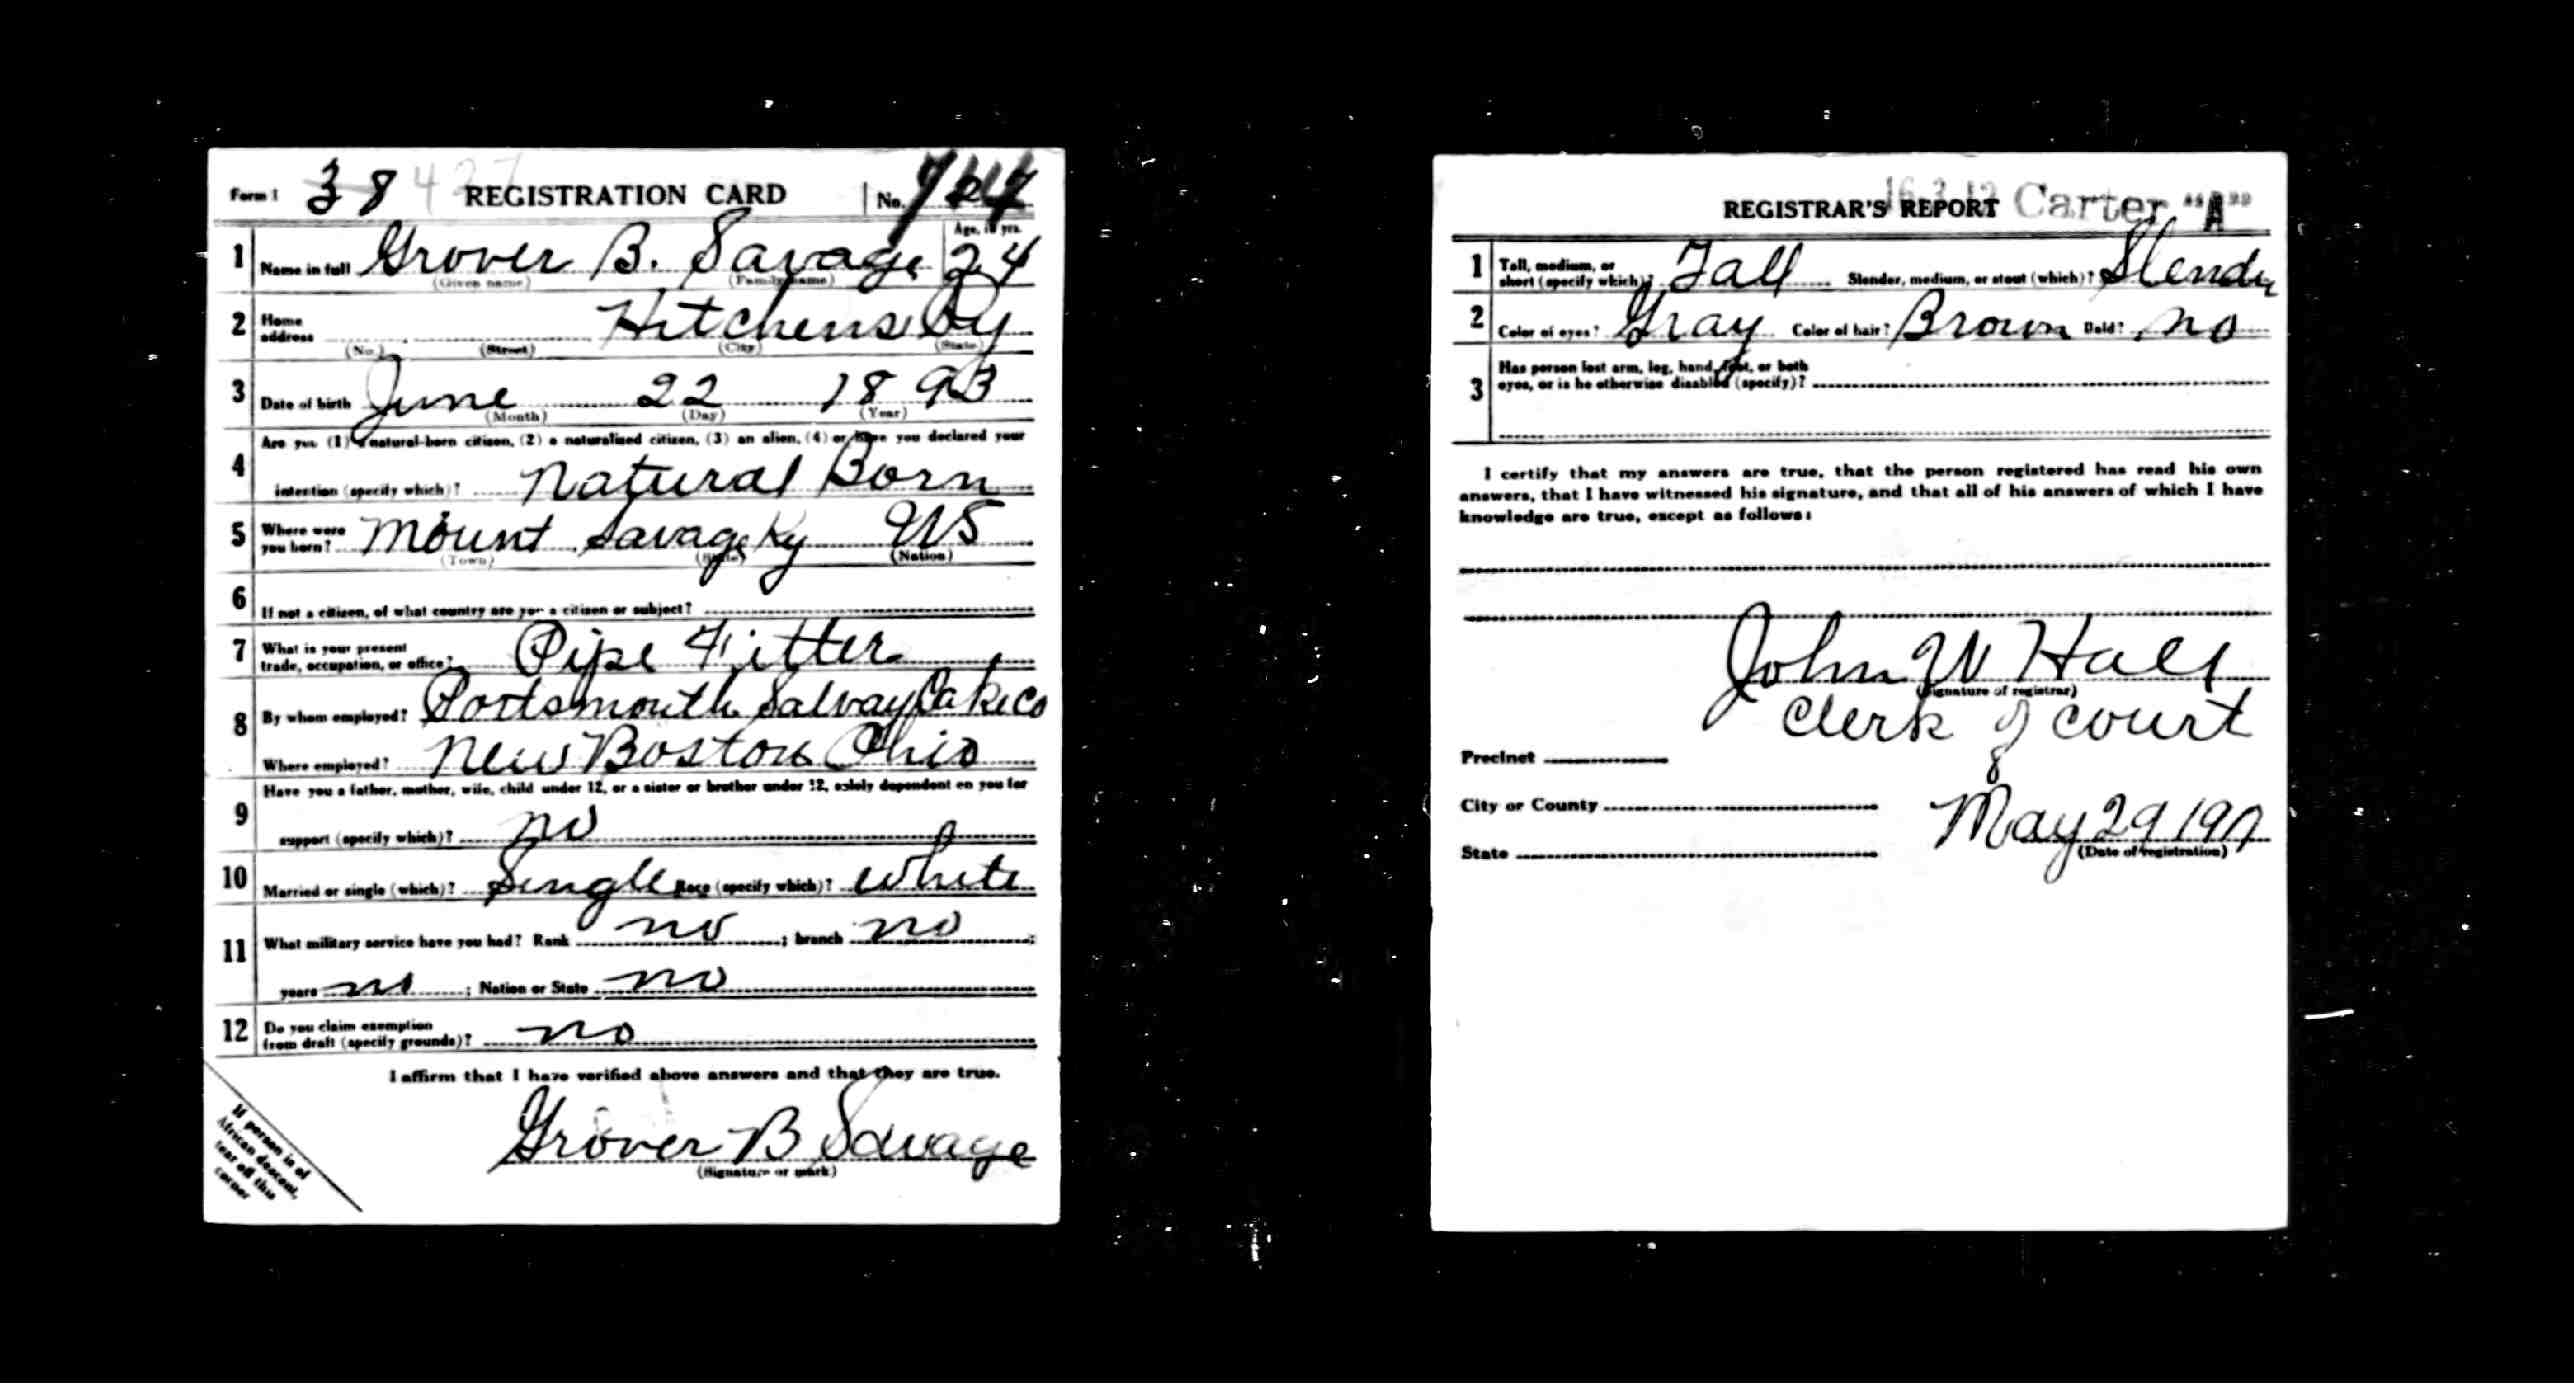 Form 1 38 427 REGISTRATION CARD No.
Age, in yrs.
1 Name in full Grover B. Savage 24
(Given name) (Family name)
2 Home address Hitchens Ky
(No.) (Street) (City) (State)
3 Date of birth June 22 1893
(Month) (Day) (Year)
Are you (1) a natural-born citizen, (2) a naturalized citizen, (3) an alien, (4) or have you declared your
4 intention (specify which)? Natural Born
5 Where were you born? Mount Savage Ky US
(Town) (State) (Nation)
6 If not a citizen, of what country are you a citizen or subject?
7 What is your present trade, occupation, or office? Pipe Fitter
8 By whom employed? Portsmouth Salvay Cake Co
Where employed? New Boston Ohio
Have you a father, mother, wife, child under 12, or a sister or brother under 12, solely dependent on you for
9 support (specify which)? no
10 Married or single (which)? Single Race (specify which)? White
11 What military service have you had? Rank no ; branch no ;
years no ; Nation or State no
12 Do you claim exemption from draft (specify grounds)? no
I affirm that I have verified above answers and that they are true.
Grover B Savage
(Signature or mark)
If person is of
African descent,
tear off this
corner
REGISTRAR'S REPORT Carter "A"
1 Tall, medium, or short (specify which)? Tall Slender, medium, or stout (which)? Slender
2 Color of eyes? Gray Color of hair? Brown Bald? no
3 Has person lost arm, leg, hand, foot, or both
eyes, or is he otherwise disabled (specify)?
I certify that my answers are true, that the person registered has read his own
answers, that I have witnessed his signature, and that all of his answers of which I have
knowledge are true, except as follows:
John W Hall
(Signature of registrar)
Clerk of court
Precinct
8
City or County
May 29 1917
State
(Date of registration)